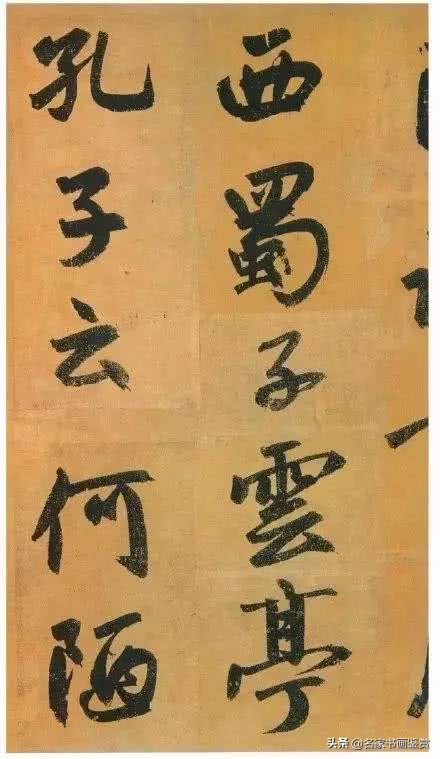 西蜀子雲亭
孔子云何陋
头条 @名家书画鉴赏